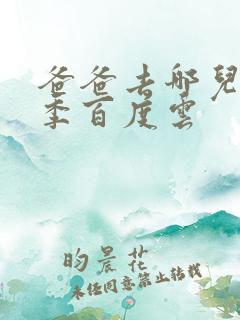 爸爸去哪兒
季百度雲
昀晨花
未经同意禁止转载